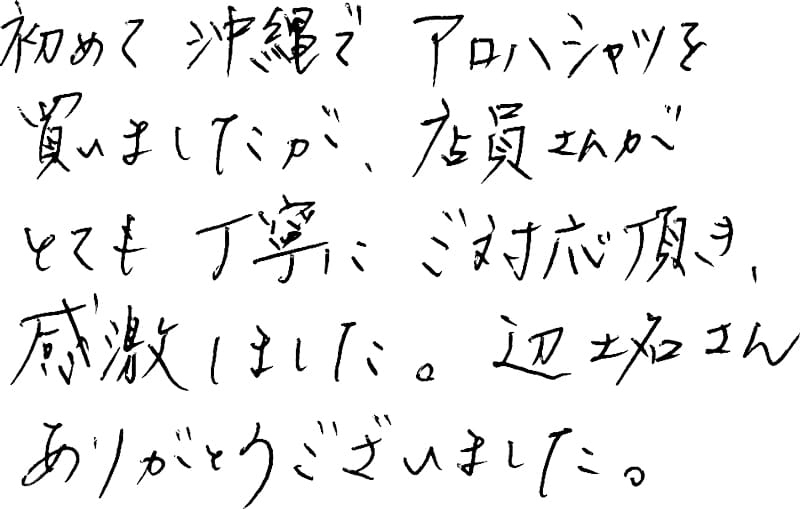 初めて 沖縄で アロハシャツを
買いましたが、店員さんが
とても 丁寧に ご対応頂き、
感激しました。辺土名さん
ありがとうございました。